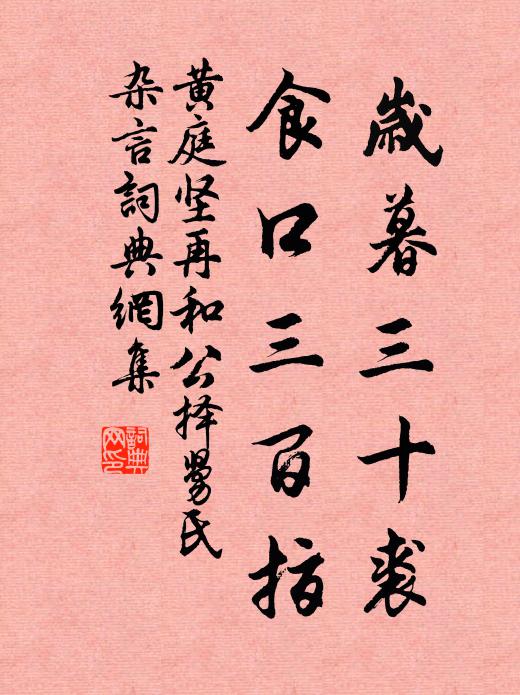 歲暮三十裘
食口三百指
黄庭坚再和公择舅氏
杂言詞典網集
詞典網印